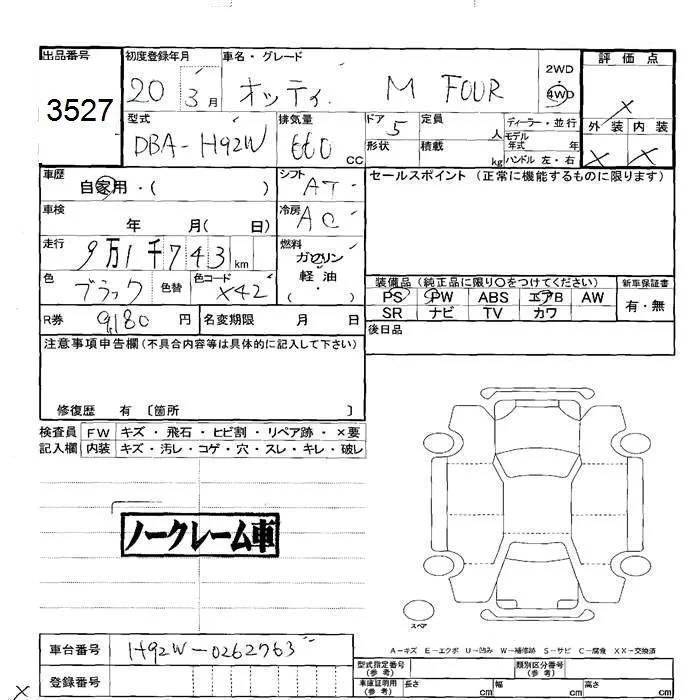 出品番号 初度登録年月 車名・グレード 評価点
3527 20 3月 オッティ M FOUR 2WD 4WD ×
型式 排気量 ドア 定員 ディーラー・並行 外装 内装
DBA-H92W 660 CC 5 人 モデル年式 年 × ×
形状 積載 kg ハンドル 左・右
車歴 シフト セールスポイント (正常に機能するものに限ります)
自家用・( ) AT
車検 年 月( 日) 冷房 AC
走行 9万1千743km 燃料 ガソリン
軽油
( ・ )
色 ブラック 色替 色コード X42
装備品 (純正品に限り○をつけてください) 新車保証書
PS PW ABS エアB AW 有・無
SR ナビ TV カワ
R券 9,180 円 名変期限 月 日 後日品
注意事項申告欄(不具合内容等は具体的に記入して下さい)
修復歴 有 〔箇所 〕
検査員 FW キズ・飛石・ヒビ割・リペア跡・×要
記入欄 内装 キズ・汚レ・コゲ・穴・スレ・キレ・破レ
ノークレーム車
スペア
A-キズ E-エクボ U-凹み W-補修跡 S-サビ C-腐食 XX-交換済
車台番号 H92W-0262763
登録番号
型式指定番号(参考) 類別区分番号(参考)
車庫証明用(参考) 長さ cm 幅 cm 高さ cm
×